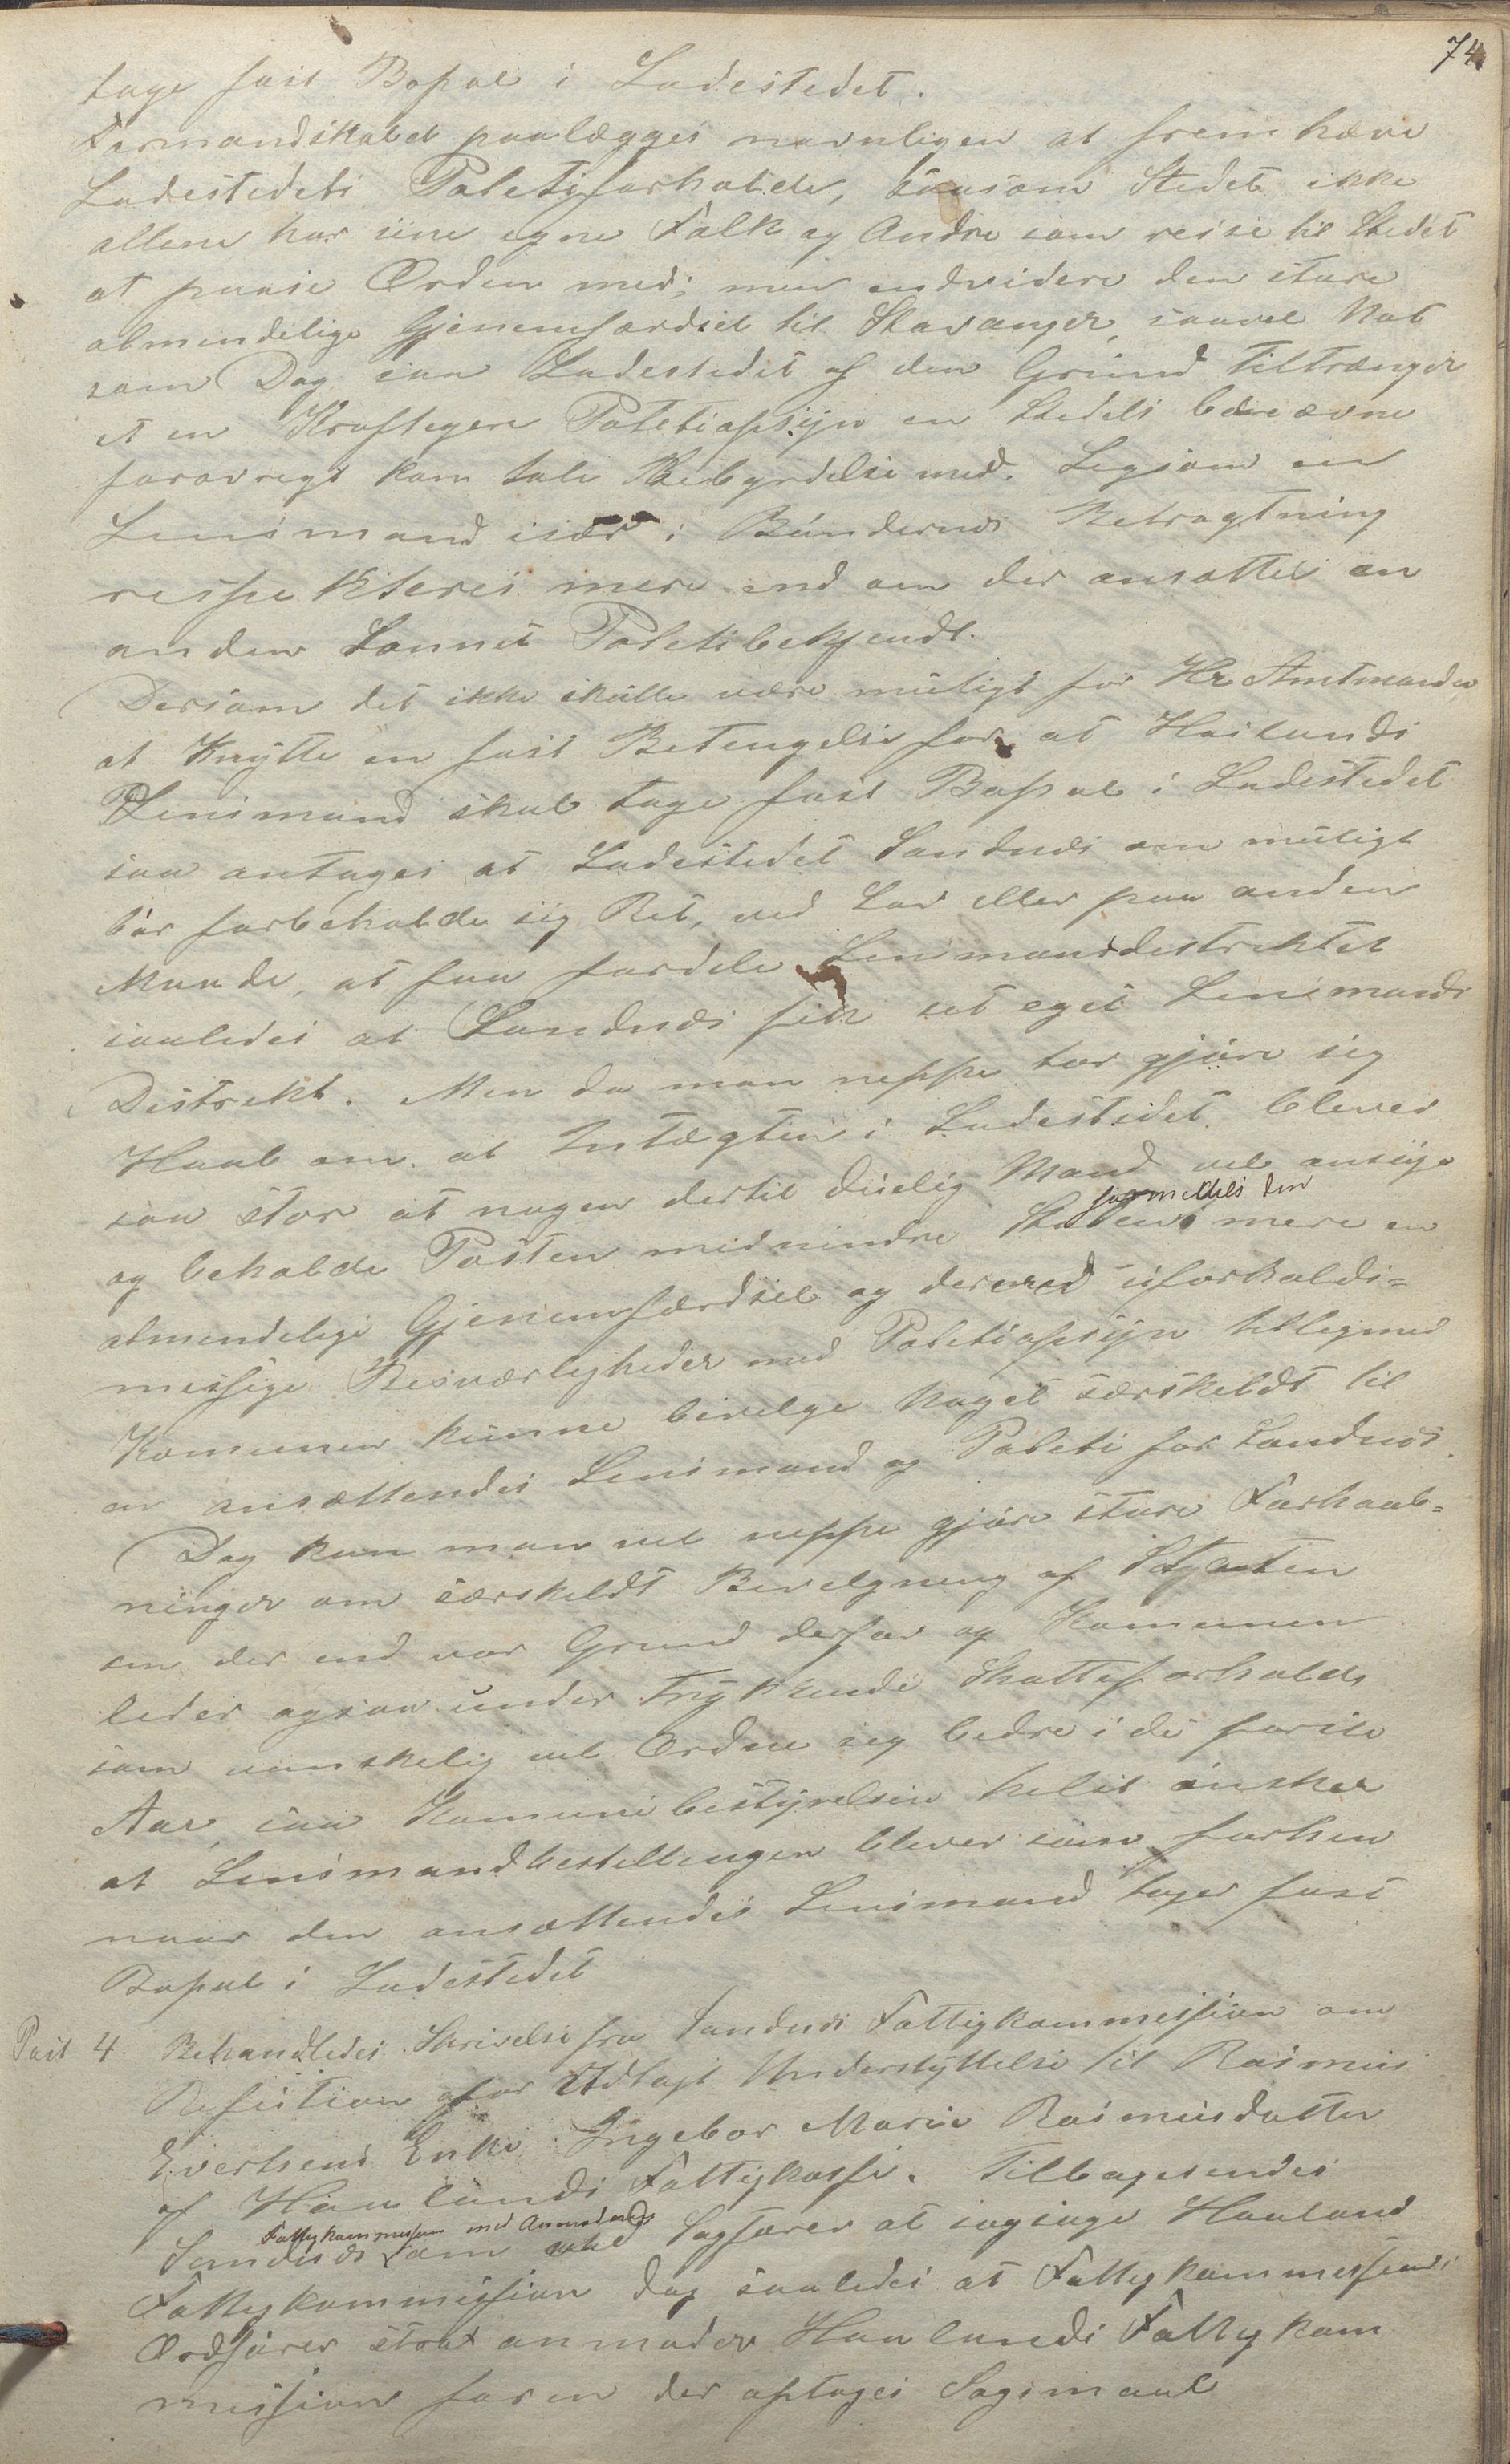 74
tage fast Bopæl i Ladestedet.
Formandskabet paalægges navnligen at fremhæve
Ladestedets Politiforholde, saasom Stedet ikke
allene har sine egne Folk og Andre som reise til Stedet
at passe Orden med; men endvidere den store
almindelige Gjenemfærdsel til Stavanger, saavel Nat
som Dag saa Ladestedet af den Grund tiltrænger
et en Kraftegere Politiopsyn en Stedets bæreævne
forøvregt kan tale Bebyrdelse med. Legsom en
Lensmand især i Bøndernes Betragtning
respekteres mere end om der ansattes en
anden Lønnet Politibetjendt.
Dersom det ikke skulle være muligt for Hr Amtmanden
at Knytte en fast Betengelse for at Høilands
Lensmand skal tage fast Bopæl i Ladestedet
saa antages at Ladestedet Sandnæs om muligt
bør forbeholde sig Ret, ved Lov eller paa anden
Maade, at faa fordele Lensmandsdestrektet
saaledes at Sandnæs fik et eget Lensmands
Destrekt. Men da man neppe tør gjøre sig
Haab om at Intægten i Ladestedet blever
saa stor at nogen dertil duelig Mand vil ansøge
og beholde Posten medmindre Staten formedels den mere en
almendelege Gjenemfærdsel og dermed uforholds=
messige Besværligheder med Politiopsyn tillegemed
Komunen kunne bevelge noget særskeldt til
en ansættendes Lensmand og Politi for Sandnæs.
Dog kan man vel neppe gjøre store Forhaab=
ninger om særskeldt Bevelgneng af Staten
om der end var Grund derfor og Komunen
leder ogsaa under trykkende Skatteforholde
som vanskelig vel Ordne sig bedre i de første
Aar, saa Komunebestyrelsen helst ønsker
at Lensmandbestellengen blever som forhen
naar den ansættendes Lensmand tager fast
Bopæl i Ladestedet
Post 4. Behandledes Skrivelse fra Sandnæs Fattigkommession om
Refution for Udlagt Understyttelse til Rasmus
Evertsens Enke Ingebor Marie Rasmusdatter
af Høilands Fattigkasse. Tilbagesendes
Sandnæs Fattigkommession med Anmodning om ved Sagfører at sagsøge Haaland
Fattigkommission dog saaledes at Fattigkommessions
Ordfører strax anmoder Haalands Fattigkom
mission foren der optages Sagsmaal